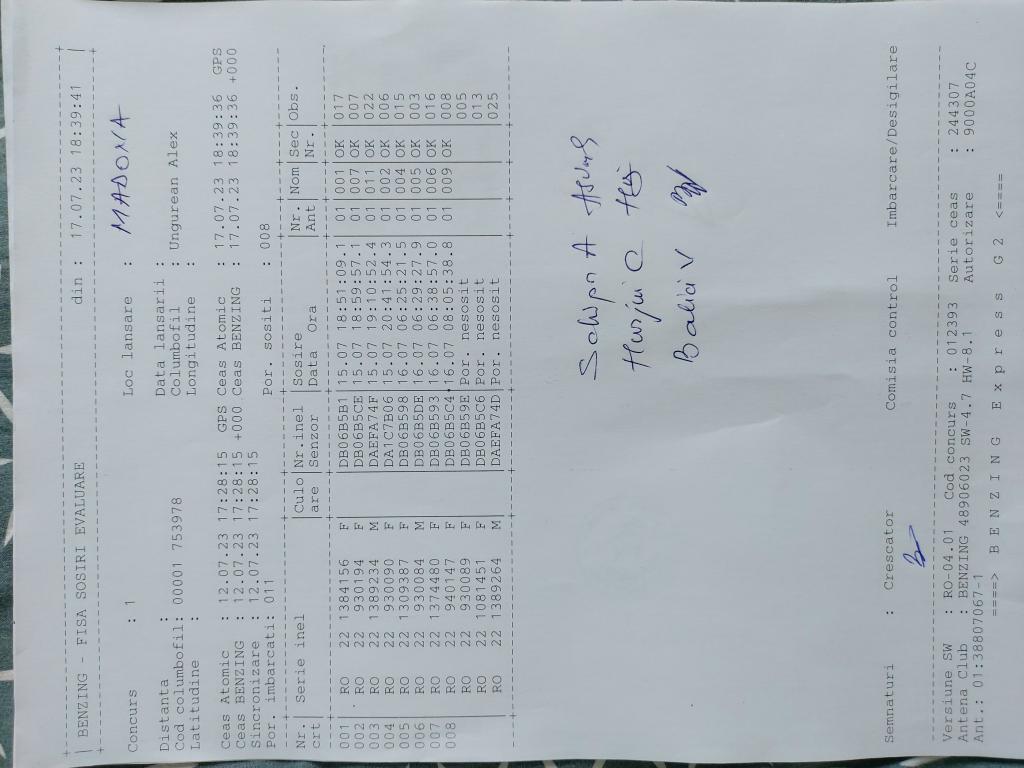 BENZING - FISA SOSIRI EVALUARE din : 17.07.23 18:39:41
Concurs : 1 Loc lansare : MADONA
Distanta : Data lansarii :
Cod columbofil: 00001 753978 Columbofil : Ungurean Alex
Latitudine : Longitudine :
Ceas Atomic : 12.07.23 17:28:15 GPS Ceas Atomic : 17.07.23 18:39:36 GPS
Ceas BENZING : 12.07.23 17:28:15 +000 Ceas BENZING : 17.07.23 18:39:36 +000
Sincronizare : 12.07.23 17:28:15
Por. imbarcati: 011 Por. sositi : 008
Nr. | Serie inel | Culo | Nr.inel | Sosire | Nr. | Nom | Sec | Obs.
crt | are | Senzor | Data Ora | Ant | Nr. |
001 | RO 22 1384156 F | DB06B5B1 | 15.07 18:51:09.1 | 01 | 001 | OK | 017
002 | RO 22 930194 F | DB06B5CE | 15.07 18:59:57.1 | 01 | 007 | OK | 007
003 | RO 22 1389234 M | DAEFA74F | 15.07 19:10:52.4 | 01 | 011 | OK | 022
004 | RO 22 930090 F | DA1C7B06 | 15.07 20:41:54.3 | 01 | 002 | OK | 006
005 | RO 22 1309387 F | DB06B598 | 16.07 06:25:21.5 | 01 | 004 | OK | 015
006 | RO 22 930084 M | DB06B5DE | 16.07 06:29:27.9 | 01 | 005 | OK | 003
007 | RO 22 1374480 F | DB06B593 | 16.07 06:38:57.0 | 01 | 006 | OK | 016
008 | RO 22 940147 F | DB06B5C4 | 16.07 08:05:38.8 | 01 | 009 | OK | 008
RO 22 930089 F | DB06B59E | Por. nesosit | 005
RO 22 1081451 F | DB06B5C6 | Por. nesosit | 013
RO 22 1389264 M | DAEFA74D | Por. nesosit | 025
Semnaturi : Crescator Comisia control Imbarcare/Desigilare
Versiune SW : RO-04.01 Cod concurs : 012393 Serie ceas : 244307
Antena Club : BENZING 48906023 SW-4.7 HW-8.1 Autorizare : 9000A04C
Ant.: 01:38807067-1
====> B E N Z I N G E x p r e s s G 2 <====